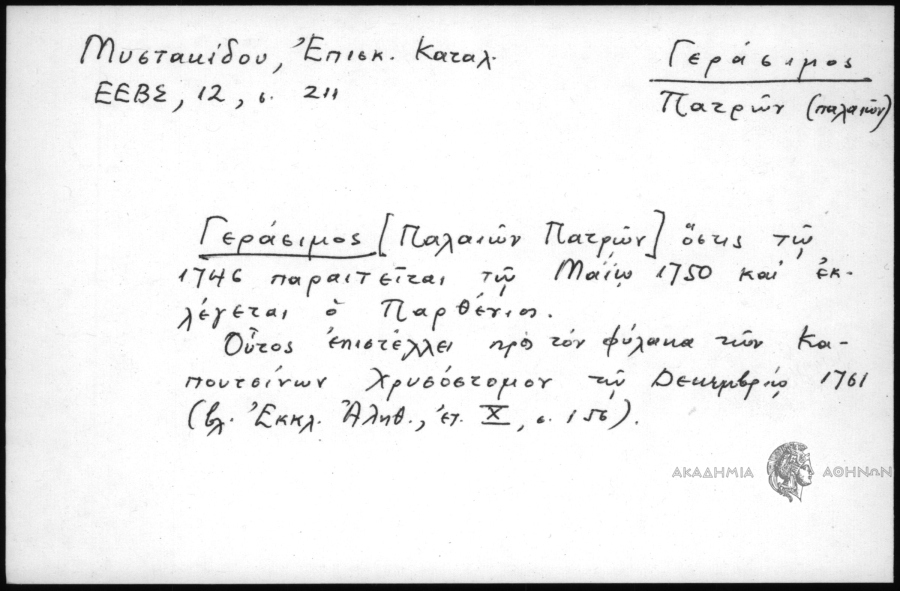 Μυστακίδου, Ἐπισκ. Καταλ.
ΕΕΒΣ, 12, σ. 211
Γεράσιμος
Πατρῶν (παλαιῶν)
Γεράσιμος [Παλαιῶν Πατρῶν] ὅστις τῷ
1746 παραιτεῖται τῷ Μαΐῳ 1750 καὶ ἐκ-
λέγεται ὁ Παρθένιος.
Οὗτος ἐπιστέλλει πρὸς τὸν φύλακα τῶν Κα-
πουτσίνων Χρυσόστομον τῷ Δεκεμβρίῳ 1761
(βλ. Ἐκκλ. Ἀληθ., ἔτ. X, σ. 156).
ΑΚΑΔΗΜΙΑ ΑΘΗΝΩΝ